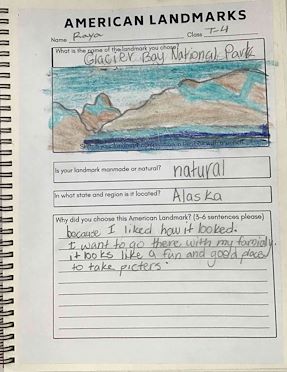 AMERICAN LANDMARKS
Name Raya Class T-4
What is the name of the landmark you chose?
Glacier Bay National Park
Is your landmark manmade or natural? natural
In what state and region is it located? Alaska
Why did you choose this American Landmark? (3-6 sentences please)
because I liked how it looked.
I want to go there with my familly.
it looks like a fun and good place
to take picters.